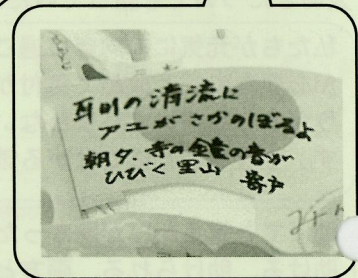 耳川の清流に
アユがさかのぼるよ
朝夕、寺の鐘の音が
ひびく里山